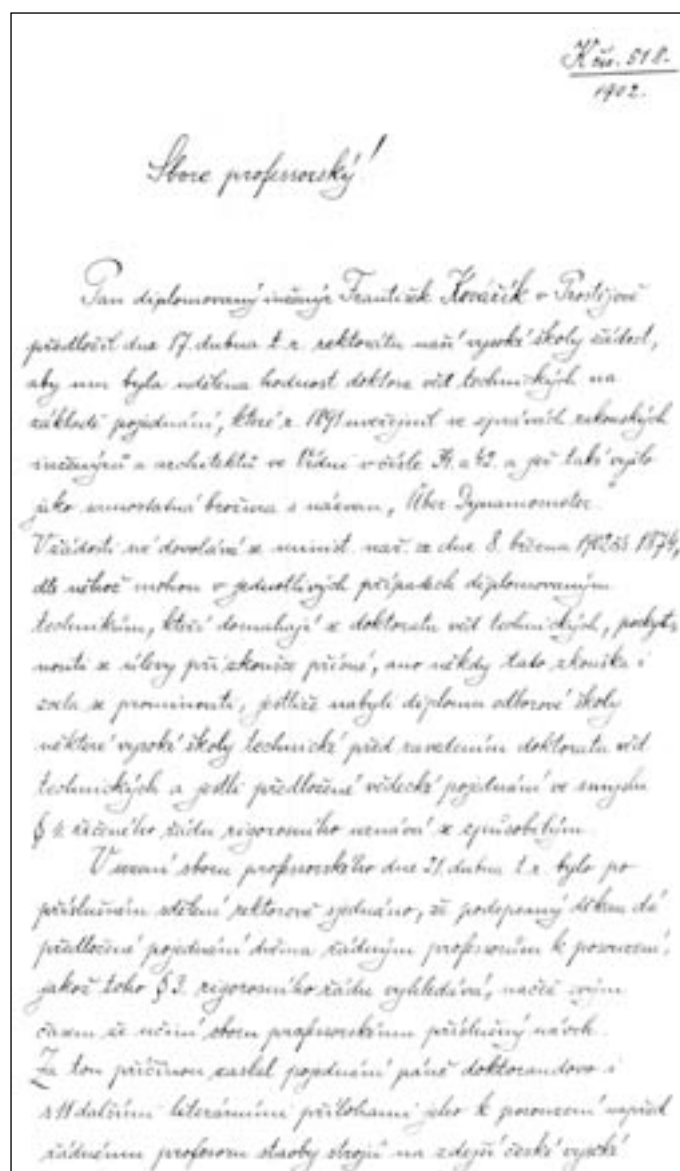 K čís. 518.
1902.
Sbore professorský!
Pan diplomovaný inženýr František Kováčík v Prostějově
předložil dne 17. dubna t. r. rektorátu naší vysoké školy žádost,
aby mu byla udělena hodnost doktora věd technických na
základě pojednání, které r. 1891 uveřejnil ve zprávách rakouských
inženýrů a architektů ve Vídni v čísle a 42. a jež také vyšlo
jako samostatná brožura s názvem „Über Dynamometer."
V žádosti své dovolává se minist. nař. ze dne 8. března 1902
dle něhož mohou v jednotlivých případech diplomovaným
technikům, kteří domáhají se doktorátu věd technických, poskyt-
nouti se úlevy při zkoušce přísné, ano někdy tato zkouška i
zcela se prominouti, jestliže nabyli diplomu odborové školy
některé vysoké školy technické před zavedením doktorátu věd
technických a jestli předložené vědecké pojednání ve smyslu
§ 4. řečeného řádu rigorosního uznává se způsobilým.
V sezení sboru professorského dne 21. dubna t. r. bylo po
příslušném sdělení rektorově sjednáno, že podepsaný děkan dá
předložené pojednání dvěma řádným professorům k posouzení,
jakož toho § 3. rigorosního řádu vyhledává, načež svým
časem že učiní sboru professorskému příslušný návrh.
Za tou příčinou zaslal pojednání páně doktorandovo i
s 11 dalšími literárními přílohami jeho k posouzení napřed
řádnému profesoru stavby strojů na zdejší české vysoké